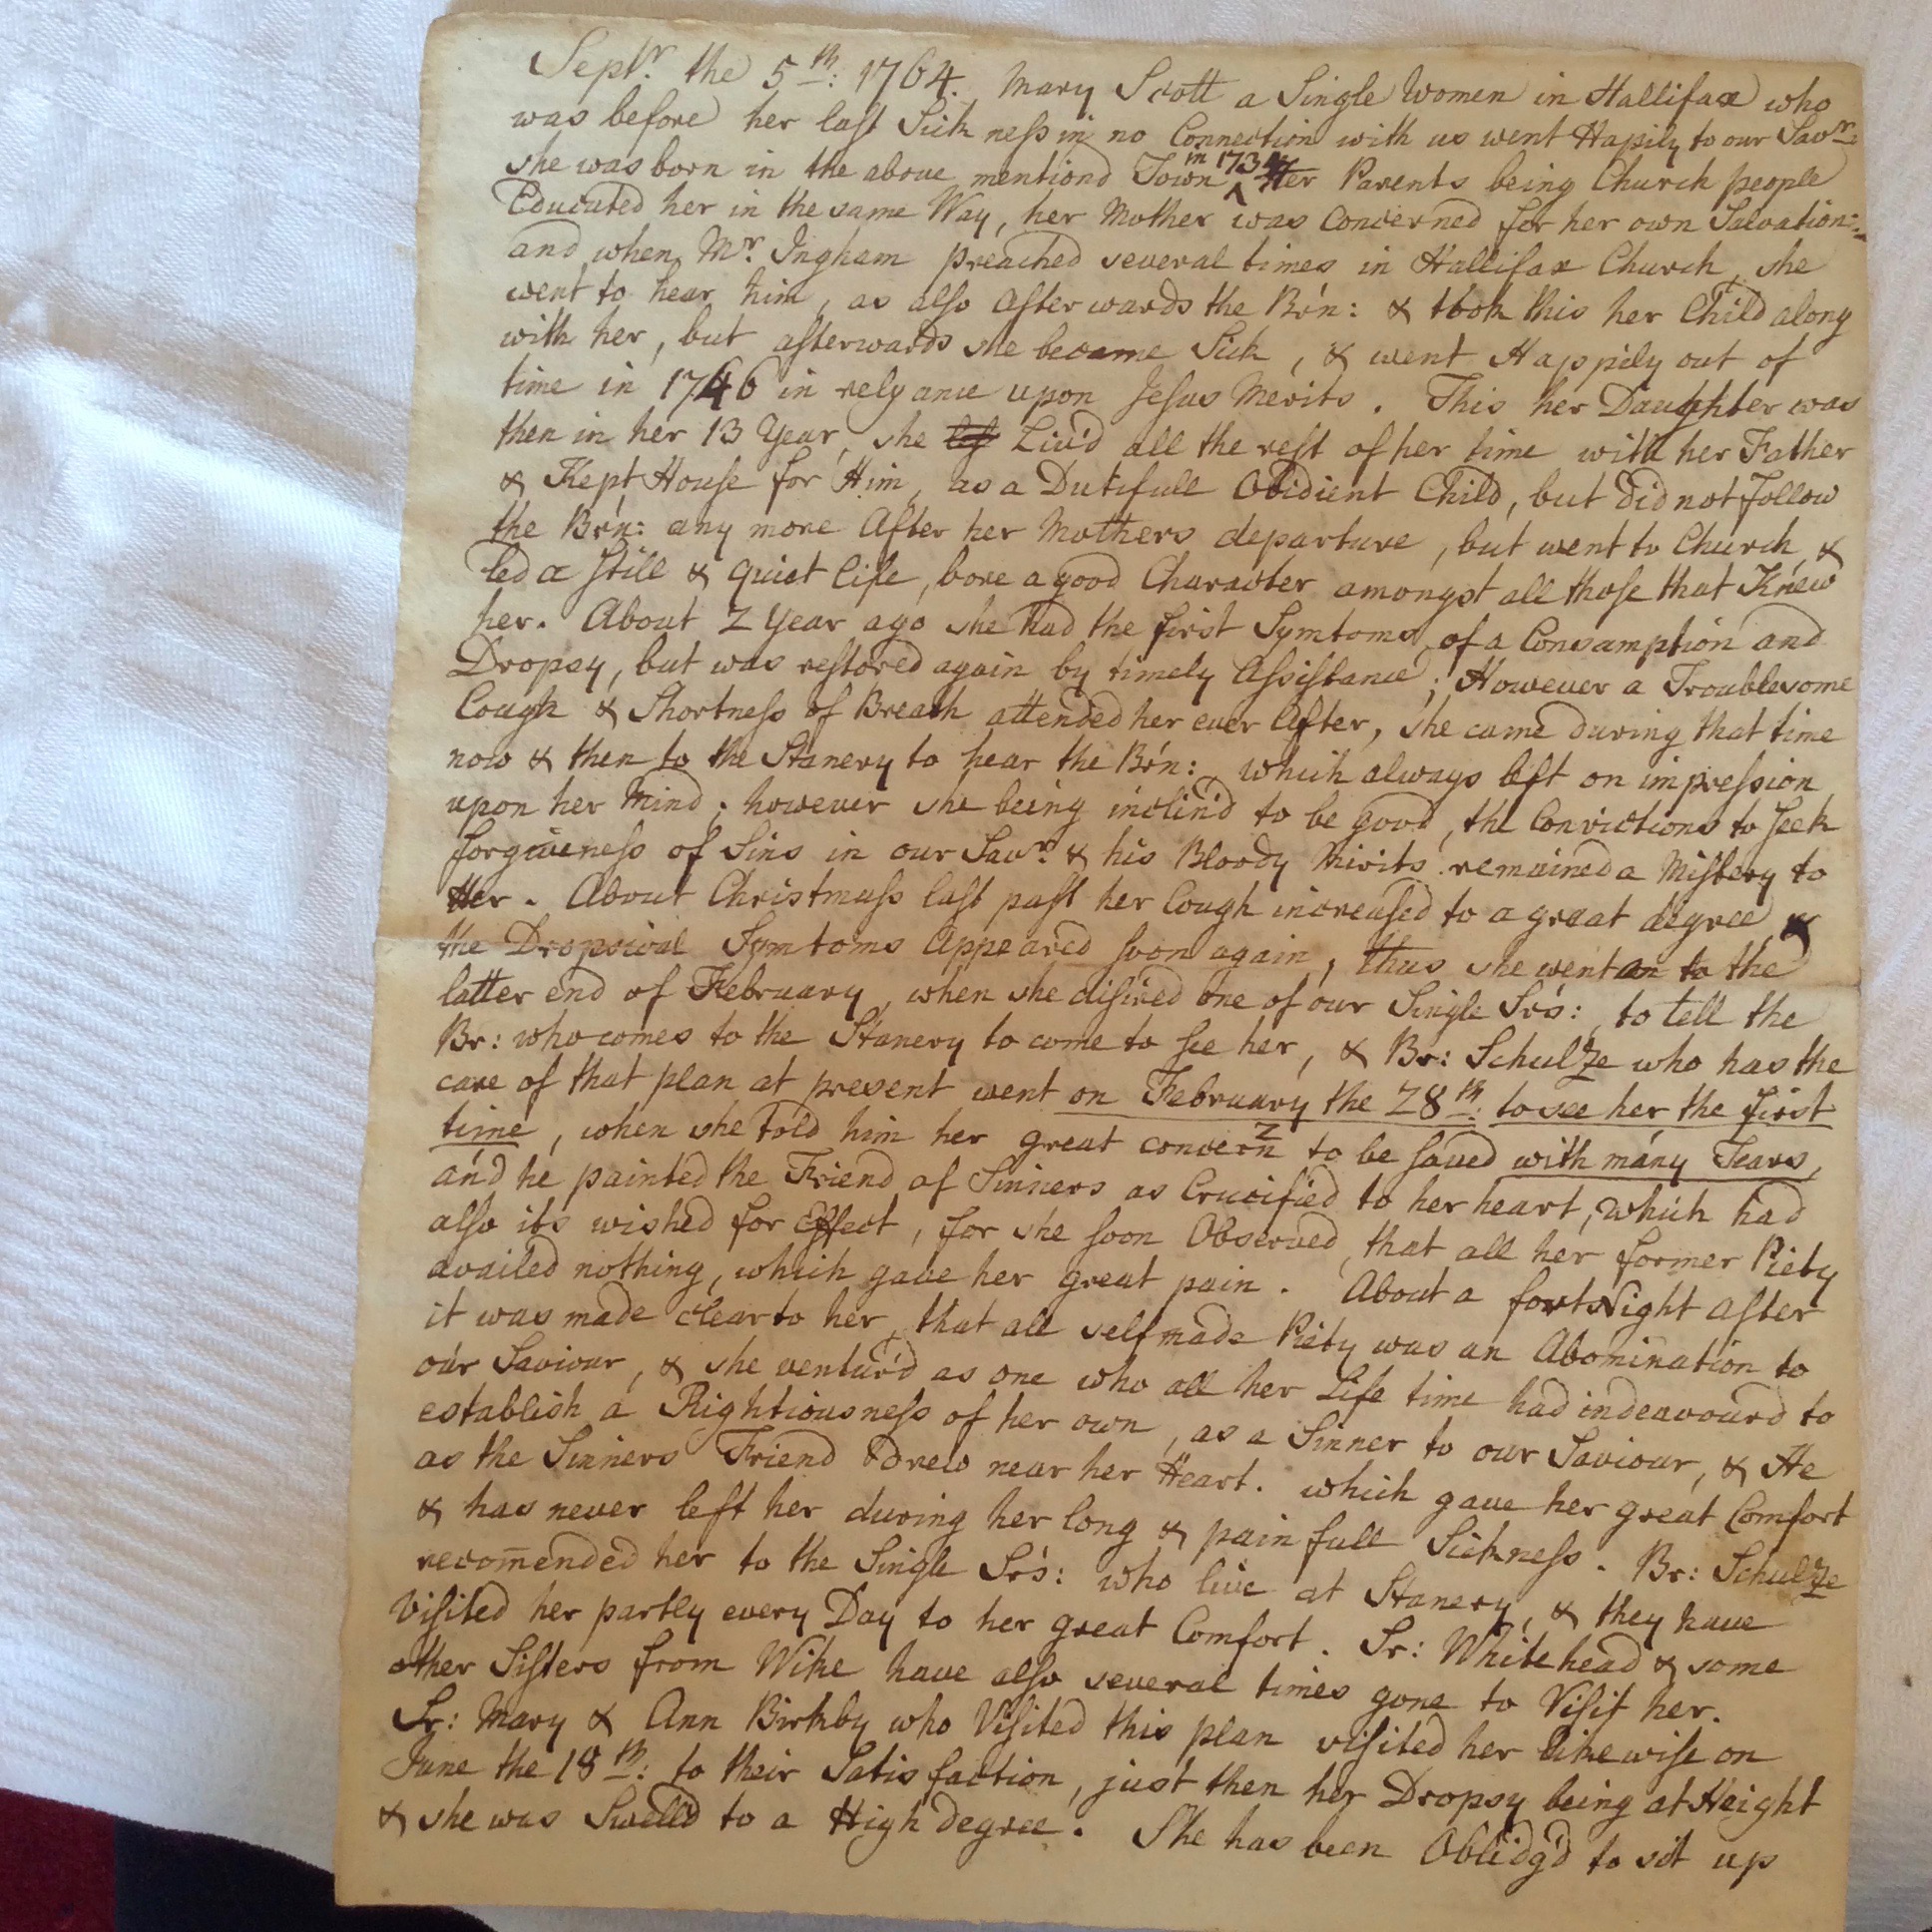 Septr. the 5th: 1764. Mary Scott a Single Women in Hallifax who
was before her last Sick ness in no Connection with us went Hapily to our Savr:
she was born in the above mentiond Town in 1734 Her Parents being Church people
Educated her in the same Way, her Mother was Concerned for her own Salvation:
and when Mr. Ingham preached several times in Hallifax Church, she
went to hear him, as also afterwards the Brn: & took this her Child along
with her, but afterwards she became Sick, & went Happily out of
time in 1746 in relyance upon Jesus Merits. This her Daughter was
then in her 13 Year, she Liv'd all the rest of her time with her Father
& Kept House for Him, as a Dutifull Obidient Child, but did not Follow
the Brn: any more After her Mothers departure, but went to Church, &
led a still & quiet life, bore a good Character amongst all those that Knew
her. About 2 Year ago she had the first Symtoms of a Consamption and
Dropsy, but was restored again by timely Assistance; However a Troublesome
Cough & Shortness of Breath attended her ever After, she came during that time
now & then to the Stanery to hear the Brn: which always left on impression
upon her Mind; however she being inclin'd to be good, the Convictions to seek
forgiveness of Sins in our Savr. & his Bloody Mirits remained a Mistery to
Her. About Christmass last past her Cough increased to a great degree &
the Dropsical Symtoms Appeared soon again, thus she went on to the
latter end of February, when she disired one of our Single Srs: to tell the
Br: who comes to the Stanery to come to see her, & Br: Schulze who has the
care of that plan at present went on February the 28th: to see her the first
time, when she told him her great concern to be saved with many Tears,
and he painted the Friend of Sinners as Crucified to her heart, which had
also its wished for Effect, for she soon Observed, that all her former Piety
availed nothing, which gave her great pain. About a fortNight after
it was made clear to her, that all selfmade Piety was an Abomination to
our Saviour, & she ventur'd as one who all her Life time had indeavourd to
establish a Rightiousness of her own, as a Sinner to our Saviour, & He
as the Sinners Friend drew near her Heart. which gave her great Comfort
& has never left her during her long & pain full Sickness. Br: Schulze
recom̄ended her to the Single Srs: who live at Stanery, & they have
Visited her partly every Day to her great Comfort. Sr: Whitehead & some
other Sisters from Wike have also several times gone to Visit her.
Sr: Mary & Ann Birkby who Visited this plan visited her likewise on
June the 18th: to their Satisfaction, just then her Dropsy being at Height
& she was Swelld to a High degree. She has been Oblidg'd to sit up